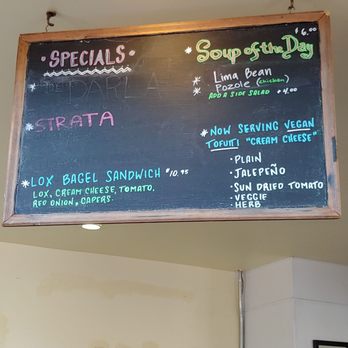 SPECIALS
STRATA
LOX BAGEL SANDWICH $10.95
LOX, CREAM CHEESE, TOMATO,
RED ONION, CAPERS.
$6.00
Soup of the Day
Lima Bean
Pozole (chicken)
ADD A SIDE SALAD $4.00
NOW SERVING VEGAN
TOFUTTI "CREAM CHEESE"
· PLAIN
· JALEPEÑO
· SUN DRIED TOMATO
· VEGGIE
· HERB